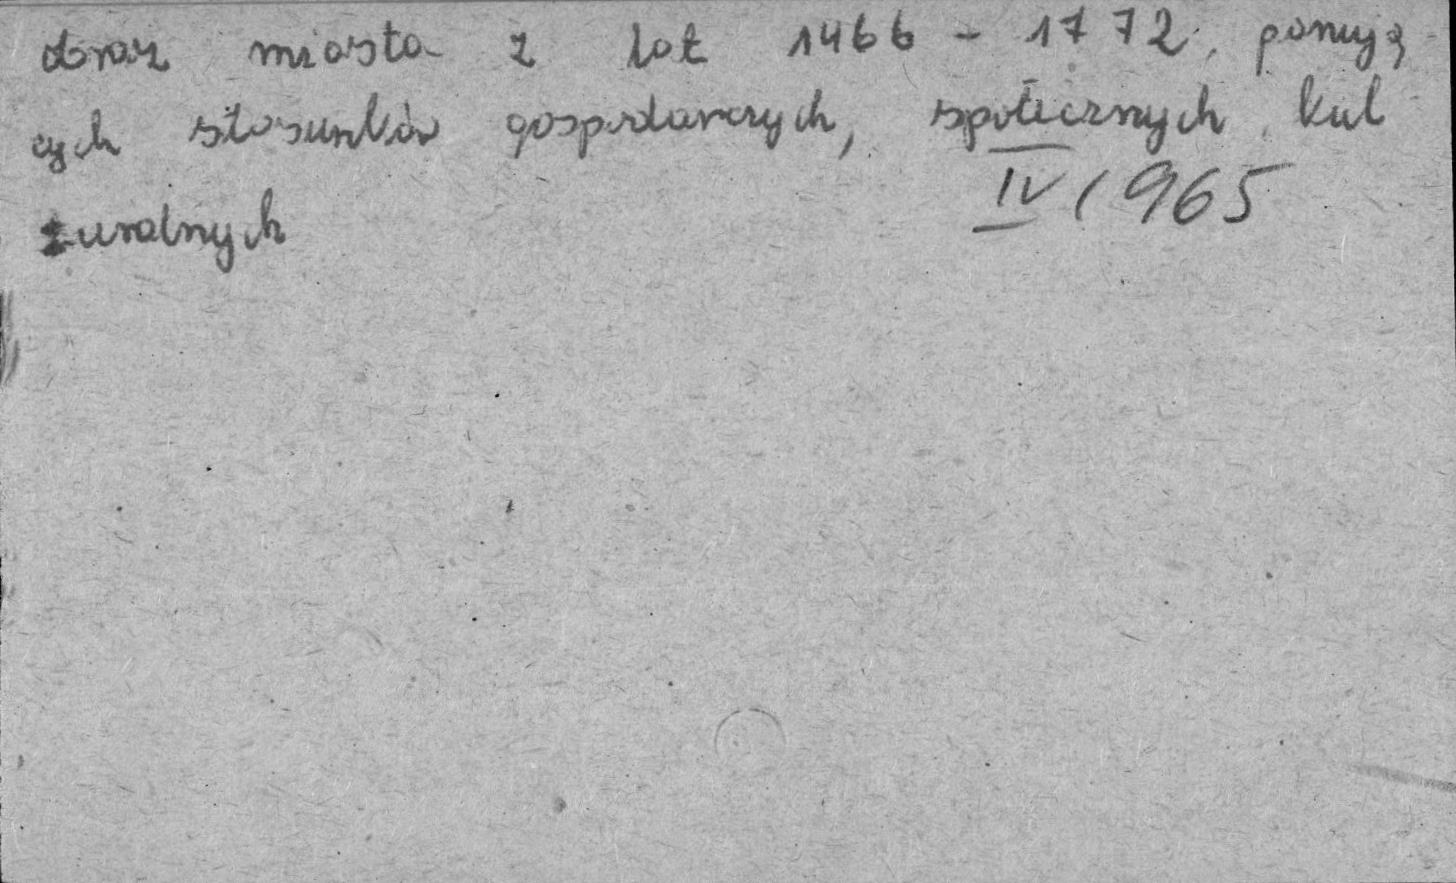 obraz miasta z lat 1466 - 1772, panują-
cych stosunków gospodarczych, społecznych, kul-
turalnych
IV 1965